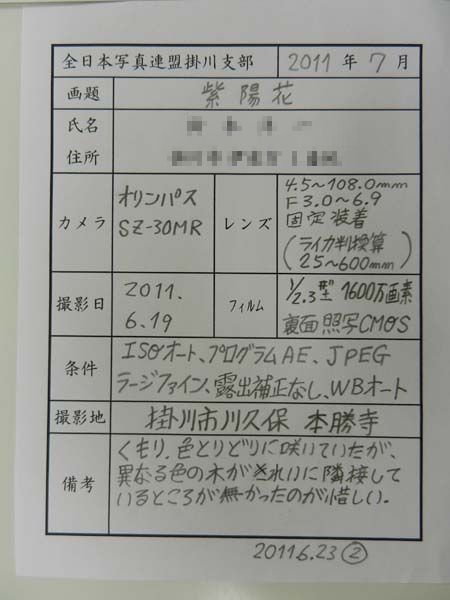 全日本写真連盟掛川支部 2011 年 7 月
画題 紫陽花
氏名
住所
カメラ オリンパス SZ-30MR
レンズ 4.5~108.0mm
F3.0~6.9
固定装着
(ライカ判換算
25~600mm)
撮影日 2011.
6.19
フィルム 1/2.3型 1600万画素
裏面照写CMOS
条件 ISOオート、プログラムAE、JPEG
ラージファイン、露出補正なし、WBオート
撮影地 掛川市川久保 本勝寺
備考 くもり.色とりどりに咲いていたが、
異なる色の木がきれいに隣接して
いるところが無かったのが惜しい.
2011.6.23 ②